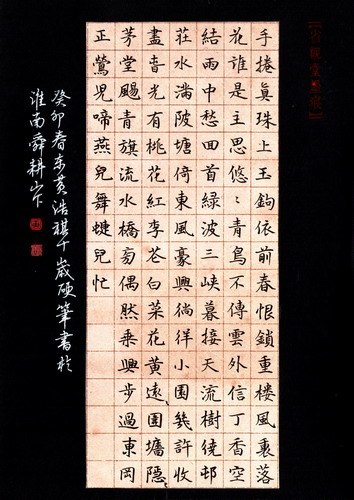 手捲眞珠上玉鉤依前春恨鎖重樓風裏落
花誰是主思悠〻青鳥不傳雲外信丁香空
結雨中愁回首綠波三峽暮接天流樹繞邨
莊水滿陂塘倚東風豪興徜徉小園幾許收
盡春光有桃花紅李花白菜花黃遠圍牆隱
芳堂颺青旗流水橋旁偶然乘興步過東岡
正鶯兒啼燕兒舞蝶兒忙
癸卯春末黃浩祺十歲硬筆書於
淮南舜耕山下